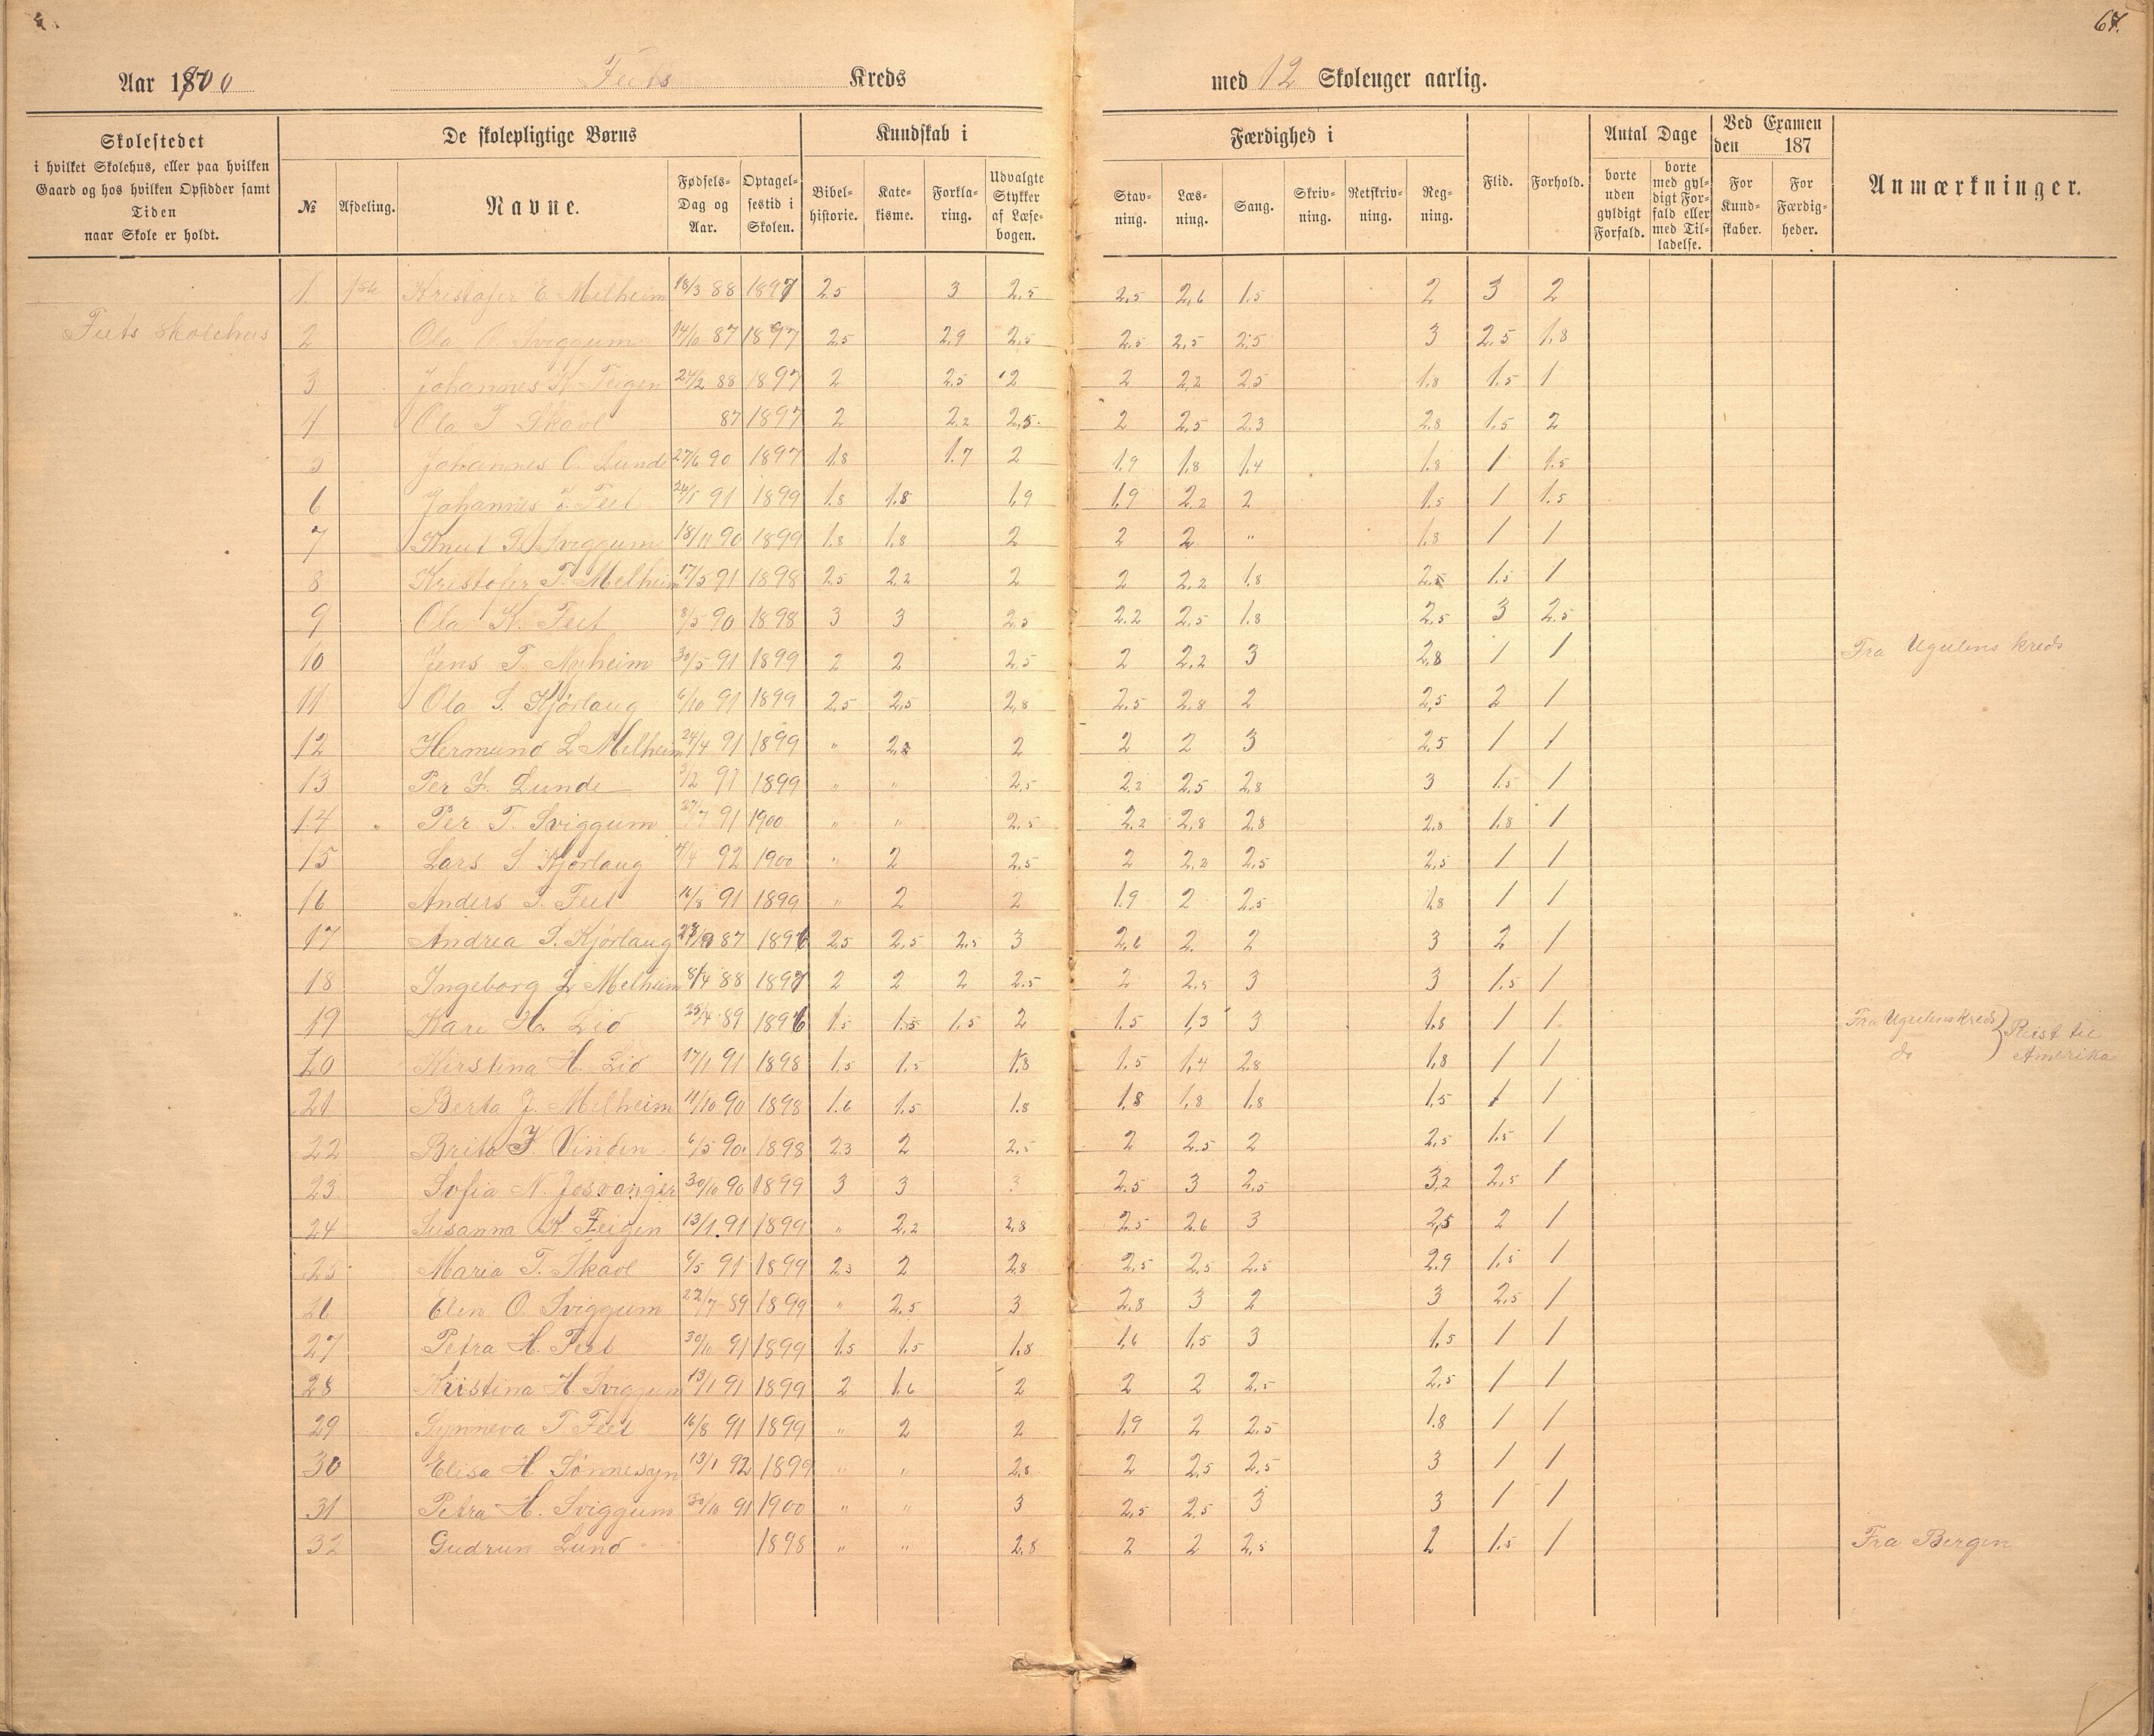 67.
Aar 1900 Feets Kreds med 12 Skoleuger aarlig.
Skolestedet i hvilket Skolehus, eller paa hvilken Gaard og hos hvilken Opsidder samt Tiden naar Skole er holdt.
De skolepligtige Børns
№ Afdeling. Navne. Fødsels-Dag og Aar. Optagelsestid i Skolen.
Kundskab i
Bibelhistorie. Katekisme. Forklaring. Udvalgte Stykker af Læsebogen.
Færdighed i
Stavning. Læsning. Sang. Skrivning. Retskrivning. Regning.
Flid. Forhold.
Antal Dage
borte uden gyldigt Forfald. borte med gyldigt Forfald eller med Tilladelse.
Ved Examen den 187
For Kundskaber. For Færdigheder.
Anmærkninger.
1 1ste Kristofer E. Melheim 18/3 88 1897 2.5 3 2,5 2,5 2,6 1.5 2 3 2
Feets skolehus 2 Ola O. Sviggum 14/6 87 1897 2.5 2.9 2,5 2.5 2,5 2,5 3 2.5 1.8
3 Johannes K. Teigen 24/2 88 1897 2 2.5 2 2 2,2 2.5 1.8 1.5 1
4 Ola T Skavl 87 1897 2 2.2 2,5. 2 2,5 2.3 2.8 1.5 2
5 Johannes O. Lunde 27/6 90 1897 1.8 1.7 2 1.9 1.8 1.4 1.8 1 1.5
6 Johannes J. Feet 24/5 91 1899 1.8 1.8 1.9 1.9 2.2 2 1.5 1 1.5
7 Knut S. Sviggum 18/11 90 1899 1.8 1.8 2 2 2 " 1.8 1 1
8 Kristofer T. Melheim 17/5 91 1898 2.5 2.2 2 2 2.2 1.8 2.5 1.5 1
9 Ola K. Feet 8/5 90 1898 3 3 2.5 2.2 2,5 1.8 2.5 3 2.5
10 Jens T. Nyheim 30/5 91 1899 2 2 2,5 2 2,2 3 2,8 1 1 Fra Ugulens kreds
11 Ola S. Kjørlaug 6/10 91 1899 2.5 2,5 2,8 2.5 2.8 2 2,5 2 1
12 Hermund L Melheim 24/4 91 1899 " 2,2 2 2 2 3 2.5 1 1
13 Per J. Lunde 3/2 91 1899 " " 2.5 2.2 2.5 2,8 3 1.5 1
14 Per T. Sviggum 27/7 91 1900 " " 2.5 2.2 2,8 2.8 2.8 1.8 1
15 Lars S Kjørlaug 4/4 92 1900 " 2 2.5 2 2,2 2,5 2,5 1 1
16 Anders T. Feet 16/8 91 1899 " 2 2 1.9 2 2.5 1.8 1 1
17 Andrea S. Kjørlaug 27/9 87 1896 2.5 2,5 2.5 3 2,6 2. 2 3 2 1
18 Ingeborg L Melheim 8/4 88 1897 2 2 2 2.5 2 2.5 3 3 1.5 1
19 Kari H. Lid 25/4 89 1896 1.5 1.5 1.5 2 1.5 1,3 3 1.8 1 1 Fra Ugulens Kreds } Reist til
20 Kirstina H. Lid 17/1 91 1898 1.5 1.5 1.8 1.5 1,4 2.8 1,8 1 1 do Amerika
21 Berta J. Melheim 11/10 90 1898 1.6 1.5 1.8 1.8 1,8 1.8 1,5 1 1
22 Brita K. Vinden 6/5 90. 1898 2.3 2 2.5 2 2.5 2 2,5 1.5 1
23 Sofia N. Josvanger 30/10 90 1899 3 3 3 2.5 3 2,5 3,2 2,5 1
24 Susanna K. Teigen 13/1 91 1899 " 2,2 2,8 2.5 2.6 3 2,5 2 1
25 Maria T. Skavl 6/5 91 1899 2.3 2 2.8 2,5 2.5 2.5 2.9 1.5 1
26 Elen O. Sviggum 22/7 89 1899 " 2,5 3 2.8 3 2 3 2.5 1
27 Petra H. Feet 30/10 91 1899 1.5 1.5 1,8 1,6 1,5 3 1,5 1 1
28 Kristina H. Sviggum 13/1 91 1899 2 1.6 2 2 2 2,5 2,5 1 1
29 Synneva T Feet 16/8 91 1899 " 2 2 1,9 2 2.5 1.8 1 1
30 Elisa H. Sønnesyn 13/1 92 1899 " " 2.8 2 2,5 2,5 3 1 1
31 Petra H. Sviggum 30/10 91 1900 " " 3 2,5 2.5 3 3 1 1
32 Gudrun Lund 1898 " " 2,8 2 2 2,5 2 1.5 1 Fra Bergen